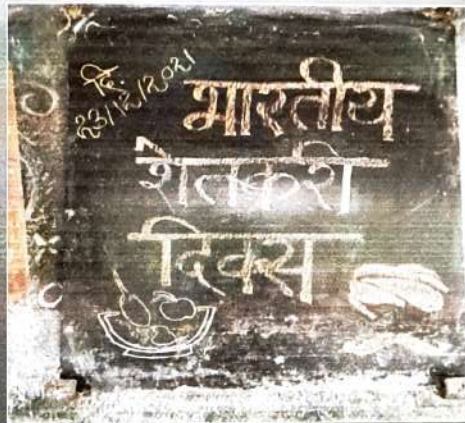 दि.
२३/१२/२०२१
भारतीय
शेतकरी
दिवस